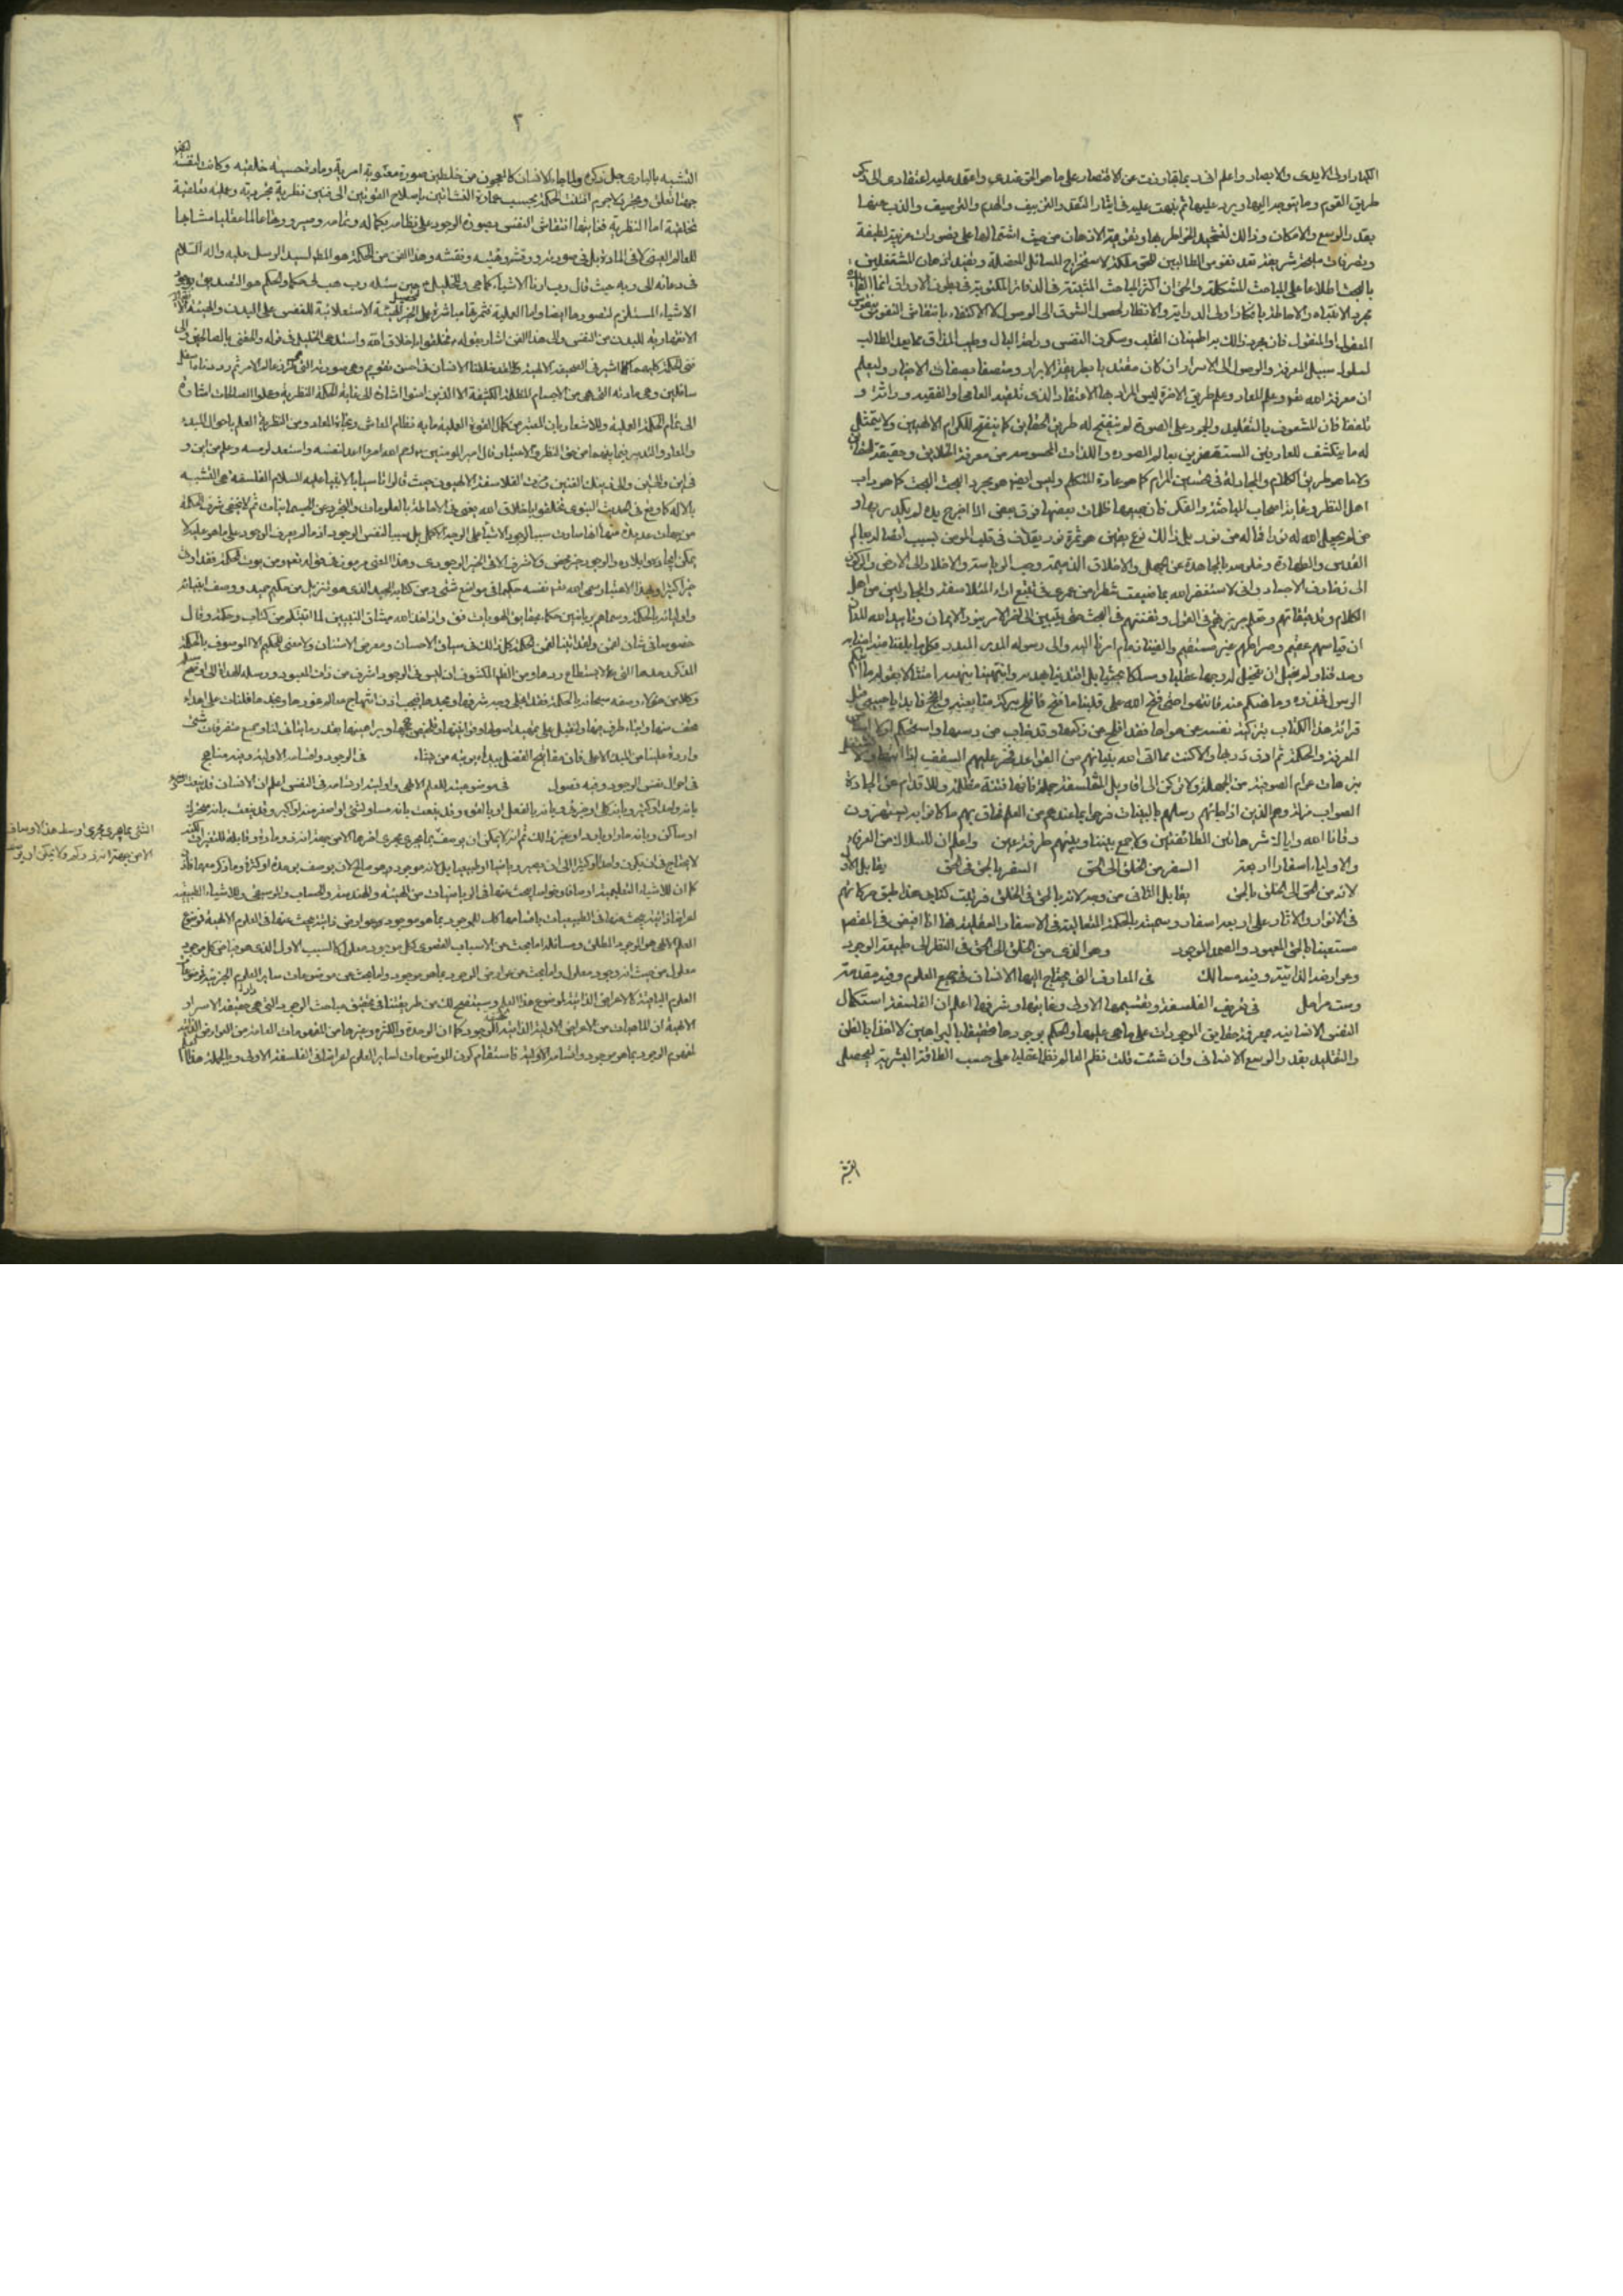 الكبار اولى الايدى والابصار واعلم انى ربما تجاوزت عن الاقتصار على ما هو الحق عندى واعتمد عليه اعتقادى الى ذكر
طريق القوم وما يتوجه اليها ويرد عليها ثم نبهت عليه فى اثناء النقد والتزييف والهدم والترصيف والذب عنها
بقدر الوسع والامكان وذلك لتشحيذ الخواطر بها وتقوية الاذهان من حيث اشتمالها على تصورات غريبة لطيفة
وتصرفات مليحة شريفة تعد نفوس الطالبين للحق ملكة لاستخراج المسائل المعضلة وتفيد اذهان المشتغلين
بالبحث اطلاعا على المباحث المشكلة والحق ان اكثر المباحث المثبتة فى الدفاتر المكتوبة فى بطون الاوراق انما الفائدة
مجرد الانتباه والاحاطة بافكار اولى الدراية والانظار لحصول الشوق الى الوصول لا الاكتفاء بانتقاش النفوس بنقوش
المعقول او المنقول فان مجرد ذلك به اطمينان القلب وسكون النفس وراحة البال وطيب المذاق مما يعد الطالب
لسلوك سبيل المعرفة والوصول الى الاسرار ان كان مقتديا بطريقة الابرار ومتصفا بصفات الاخيار وليعلم
ان معرفة الله تعالى وعلم المعاد وعلم طريق الاخرة ليس المراد بها الاعتقاد الذى تلقيه العامى او الفقيه وراثة و
تلقفا فان المشعوف بالتقليد والجمود على الصورة لم ينفتح له طريق الحقايق كما ينفتح للكرام الالهيين ولا يتمثل
له ما ينكشف للعارفين المستصغرين لعالم الصورة واللذات المحسوسه من معرفة الخلايق وحقيقة الحقايق
ولا ما هو طريق الكلام والمجادلة فى تحسين المرام كما هو عادة المتكلم وليس ايضا هو مجرد البحث البحت كما هو داب
اهل النظر وغاية اصحاب المباحثة والفكر فان جميعها ظلمات بعضها فوق بعض اذا اخرج يده لم يكد يريها و
من لم يجعل الله له نورا فما له من نور بل ذلك نوع يقين هو ثمرة نور يقذف فى قلب المومن بسبب اتصاله بعالم
القدس والطهارة وخلوصه بالمجاهدة عن الجهل والاخلاق الذميمة وحب الرياسة والاخلاد الى الارض والركون
الى زخارف الاجساد وانى لاستغفر الله مما ضيعت شطرا من عمرى فى تتبع اراء المتفلسفة والمجادلين من اهل
الكلام وتدقيقاتهم وتعلم جربزتهم فى القول وتفننهم فى البحث حتى تبين لى اخر الامر بنور الايمان وتاييد الله المنان
ان قياسهم عقيم وصراطهم غير مستقيم فالقينا زمام امرنا اليه والى رسوله النذير المنذر فكل ما بلغنا منه امنا به
وصدقناه ولم نحتل ان نخيل له وجها عقليا ومسلكا بحثيا بل اقتدينا بهداه وانتهينا بنهيه امتثالا لقوله ما اتيكم
الرسول فخذوه وما نهيكم عنه فانتهوا حتى فتح الله على قلبنا ما فتح فافلح ببركة متابعته وانجح فابدا يا حبيبى قبل
قرائة هذا الكتاب بتزكية نفسك عن هواها فقد افلح من زكيها وقد خاب من دسيها واستحكم اولا اساس
المعرفة والحكمة ثم ارق ذروتها والا كنت ممن اتى الله بنيانهم من القواعد فخر عليهم السقف اذا اتيها ولا تشتغل
بترهات عوام الصوفية من الجهلة ولا تركن الى اقاويل المتفلسفة جملة فانها فتنة مظلة وللاقدام عن الجادة
الصواب مزلة وهم الذين اذا جائتهم رسلهم بالبينات فرحوا بما عندهم من العلم وحاق بهم ما كانوا به يستهزؤن
وقانا الله واياك شر هاتين الطائفتين ولا جمع بيننا وبينهم طرفة عين واعلم ان للسلاك من العرفاء
والاولياء اسفارا اربعة السفر من الخلق الى الحق السفر بالحق فى الحق يقابل الاول
لانه من الحق الى الخلق بالحق يقابل الثانى من وجه لانه بالحق فى الخلق فرتبت كتابى هذا طبق حركاتهم
فى الانوار والاثار على اربعة اسفار وسميته بالحكمة المتعالية فى الاسفار العقلية فها انا افيض فى المقصود
مستعينا بالحق المعبود والصمد الموجود وهو الذى من الخلق الى الحق فى النظر الى طبيعة الوجود
وعوارضه الذاتية وفيه مسالك فى المعارف التى يحتاج اليها الانسان فى جميع العلوم وفيه مقدمة
وستة مراحل فى تعريف الفلسفة وتقسيمها الاولى وغايتها وشرفها اعلم ان الفلسفة استكمال
النفس الانسانية بمعرفة حقايق الموجودات على ما هى عليها والحكم بوجودها تحقيقا بالبراهين لا اخذا بالظن
والتقليد بقدر الوسع الانسانى وان شئت قلت نظم العالم نظما عقليا على حسب الطاقة البشرية ليحصل
التشبه
٢
التشبه بالبارى جل ذكره ولما جاء الانسان كالمعجون من خلطين صورة معنوية امرية ومادة حسية خلقية وكانت لنفسه ايضا
جهتا تعلق وتجرد لا جرم افتنت الحكمة بحسب عمارة النشأتين باصلاح القوتين الى فنين نظرية تجردية وعملية تعلقية
تخلقية اما النظرية فغايتها انتقاش النفس بصورة الوجود على نظامه بكماله وتمامه وصيرورتها عالما عقليا مشابها
للعالم العينى لا فى المادة بل فى صورته ورقشه وهيئته ونقشه وهذا الفن من الحكمة هو المطلب لسيد الرسل عليه واله السلام
فى دعائه الى ربه حيث قال رب ارنا الاشياء كما هى وللخليل ع حين سئله رب هب لى حكما والحكم هو التصديق بوجود
الاشياء المستلزم لتصورها ايضا واما العملية فثمرتها مباشرة عمل الخير لتحصيل الهيئة الاستعلائية للنفس على البدن والهيئة
الانقهارية للبدن من النفس والى هذا الفن اشار بقوله ع تخلقوا باخلاق الله واستدعى الخليل فى قوله والحقنى بالصالحين والى
فنى الحكمة كليهما اشير فى الصحيفة الالهية ولقد خلقنا الانسان فى احسن تقويم وهى صورته التى هى طراز عالم الامر ثم رددناه اسفل
سافلين وهى مادته التى هى من الاجسام المظلمة الكثيفة الا الذين امنوا اشارة الى غاية الحكمة النظرية وعملوا الصالحات اشارة
الى تمام الحكمة العملية وللاشعار بان المعتبر من كمال القوة العملية ما به نظام المعاش ونجاة المعاد ومن النظرية العلم باحوال المبدء
والمعاد والتدبر فيما بينهما من حق النظر والاعتبار قال امير المومنين ع رحم الله امرأ اعد لنفسه واستعد لرمسه وعلم من اين و
فى اين والى اين والى ذينك الفنين رمزت الفلاسفة الالهيون حيث قالوا تاسيا بالانبياء عليه السلام الفلسفة هى التشبه
بالاله كما وقع فى الحديث النبوى تخلقوا باخلاق الله يعنى فى الاحاطة بالمعلومات والتجرد عن الجسمانيات ثم لا يخفى شرف الحكمة
من جهات عديدة منها انها صارت سببا لوجود الاشياء على الوجه الاكمل بل سببا لنفس الوجود اذ ما لم يعرف الوجود على ما هو عليه لا
يمكن ايجاده وايلاده والوجود خير محض ولا شرف الا فى الخير الوجودى وهذا المعنى مرموز فى قوله تعالى ومن يوت الحكمة فقد اوتى
خيرا كثيرا وبهذا الاعتبار سمى الله تعالى نفسه حكيما فى مواضع شتى من كتابه المجيد الذى هو تنزيل من حكيم حميد ووصف انبيائه
واوليائه بالحكمة وسماهم ربانيين حكماء بحقايق الهويات فقال واذ اخذ الله ميثاق النبيين لما اتيتكم من كتاب وحكمة وقال
خصوصا فى شان لقمن ولقد اتينا لقمن الحكمة كل ذلك فى سياق الاحسان ومعرض الامتنان ولا معنى للحكيم الا الموصوف بالحكمة
المذكورة حدها التى لا يستطاع ردها ومن الظاهر المكشوف ان ليس فى الوجود اشرف من ذات المعبود ورسله الهداة الى اوضح سبله
وكلا من هؤلاء وصفه سبحانه بالحكمة فقد انجلى وجه شرفها ومجدها فيجب اذن انتهاج معالم غورها ونجدها فلنات على اهداء
تحف منها وايتاء طرف فيها ولنقبل على تمهيد اصولها وقوانينها وتلخيص حججها وبراهينها بقدر ما يتاتى لنا وجمع متفرقات شتى
واردة علينا من المبدء الاعلى فان مفاتيح الفضل بيد الله يوتيه من يشاء فى الوجود واقسامه الاولية وفيه مناهج
فى احوال نفس الوجود وفيه فصول فى موضوعيته للعلم الالهى واولية ارتسامه فى النفس اعلم ان الانسان قد ينعت
بانه واحد او كثير وبانه كلى او جزئى وبانه بالفعل او بالقوة وقد ينعت بانه مساو لشئ او اصغر منه او اكبر وقد ينعت بانه متحرك
او ساكن وبانه حار او بارد او غير ذلك ثم انه لا يمكن ان يوصف الشئ بما يجرى مجرى اخرها الا من جهة انه ذو مادة قابلة للتغيرات
لا يحتاج فى ان يكون واحدا او كثيرا الى ان يصير رياضيا او طبيعيا بل لانه موجود هو صالح لان يوصف بوحدة او كثرة وما ذكر معهما فاذن
كما ان للاشياء التعليمية اوصافا وخواص يبحث عنها فى الرياضيات من الهيئة والهندسة والحساب والموسيقى وللاشياء الطبيعية
اعراض ذاتية يبحث عنها فى الطبيعيات باقسامها كذلك للموجود بما هو موجود عوارض ذاتية يبحث عنها فى العلوم الالهية فموضوع
العلم الالهى هو الموجود المطلق ومسائله اما بحث عن الاسباب القصوى لكل موجود معلول كالسبب الاول الذى هو فياض كل موجود
معلول من حيث انه وجود معلول واما بحث عن عوارض الوجود بما هو موجود واما بحث عن موضوعات ساير العلوم الجزئية فموضوعات
العلوم الباقية كالاعراض الذاتية لموضوع هذا العلم وسيتضح لك من طريقتنا فى تحقيق مباحث الوجود التى هى حقيقة دار الاسرار
الالهية ان الماهيات من الاعراض الاولية الذاتية لحقيقة الوجود كما ان الوحدة والكثرة وغيرهما من المفهومات العامة من العوارض الذاتية
لمفهوم الوجود بما هو موجود واقسامه الاولية فاستقام كون الموضوعات لساير العلوم اعراضا فى الفلسفة الاولى وبالجملة هذا العلم
الشئ بما يجرى مجرى اوسط هذه الاوصاف
الا من جهة انه ذو كم ولا يمكن ان يوصف